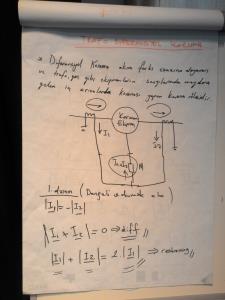 TRAFO DİFERANSİYEL KORUMA
* Diferansiyel Koruma akım farkı esasına dayanır
ve trafo, gen gibi ekipmanların sargılarında meydana
gelen iç arızalarda koruması yapan koruma rölesidir.
Korunan
Ekipm.
I1
I2
1. durum (Dengeli durumda
|I1| = -|I2|
|I1 + I2| = 0 ⇒ diff
|I1| + |I2| = 2.|I1| ⇒